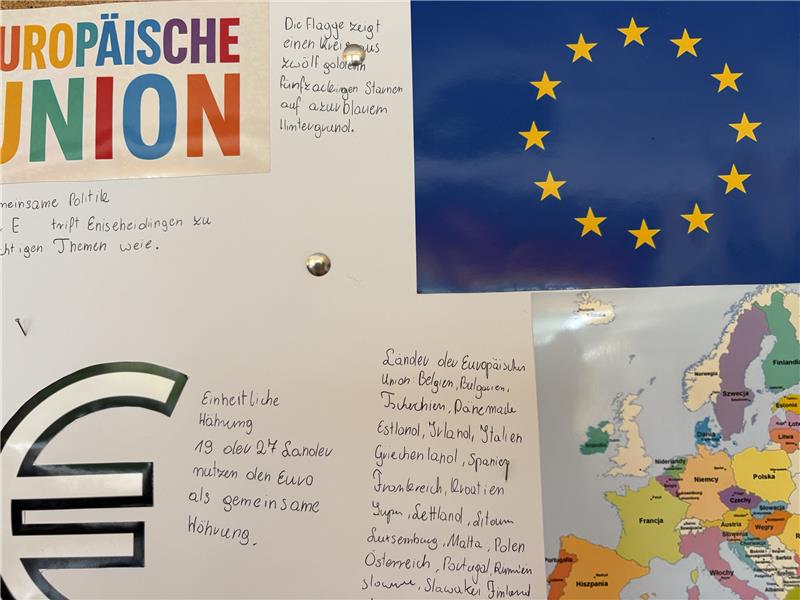 EUROPÄISCHE
UNION
Die Flagge zeigt
einen Kreis aus
zwölf goldenen
fünfzackingen Staunen
auf azurblauem
Hintergrund.
meinsame Politik
E trift Eniseheidingen zu
chtigen Themen weie.
Einheitliche
Währung
19 der 27 Länder
nutzen den Euro
als gemeinsame
Währung.
Länder der Europäischen
Union: Belgien, Bulgarien,
Tschechien, Dänemark
Estland, Irland, Italien
Griechenland, Spanien
Frankreich, Kroatien
Lettland, Litauen
Luxemburg, Malta, Polen
Österreich, Portugal, Rumänien
Slawakei Finland
Norwegia
Szwecja
Finlandia
Estonia
Litwa
Dania
Irlandia
Niderlandy
Niemcy
Polska
Czechy
Słowacja
Francja
Austria
Węgry
Słowenia
Chorwacja
Serbia
Włochy
Portugalia
Hiszpania
Madryt
Albania